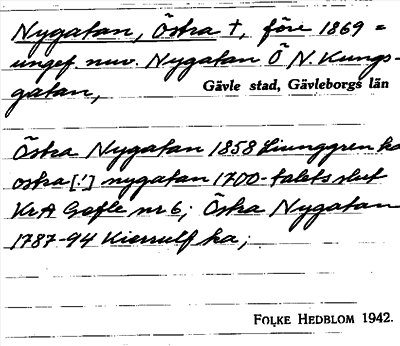 Nygatan, Östra †, före 1869 =
ungef. nuv. Nygatan Ö N. Kungs-
gatan,
Gävle stad, Gävleborgs län
Östra Nygatan 1858 Ljunggren ka
ostra [!] nygatan 1700-talets slut
KrA Gefle nr 6; Östra Nygatan
1787-94 Kierrulf ka;
FOLKE HEDBLOM 1942.